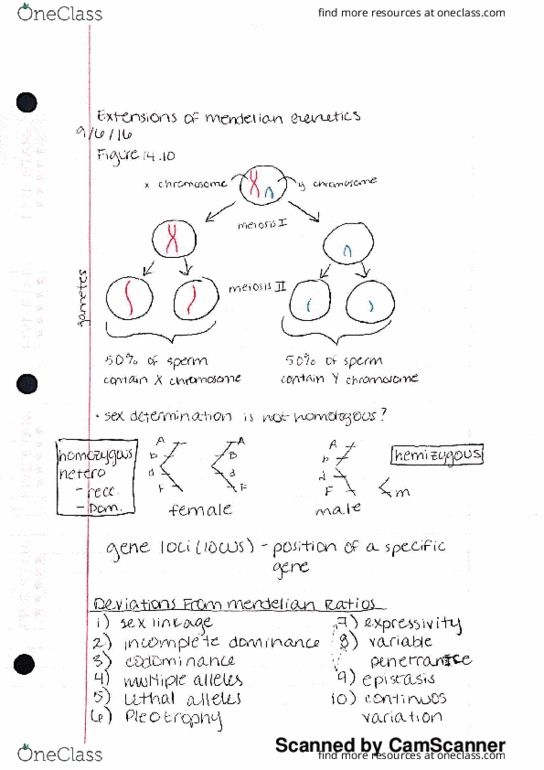 OneClass
find more resources at oneclass.com
Extensions of mendelian Genetics
9/6/16
Figure 14.10
x chromosome
y chromosome
meiosis I
gametes
meiosis II
50% of sperm
contain X chromosome
50% of sperm
contain Y chromosome
• sex determination is not homologous?
homozygous
hetero
- recc.
- Dom.
A
b
d
F
A
B
d
F
female
A
b
d
F
m
male
hemizygous
gene loci (locus) - position of a specific
gene
Deviations From mendelian Ratios
1) sex linkage
2) incomplete dominance
3) codominance
4) multiple alleles
5) Lethal alleles
6) Pleotrophy
7) expressivity
8) variable
penetrance
9) epistasis
10) continuos
variation
Scanned by CamScanner
OneClass
find more resources at oneclass.com